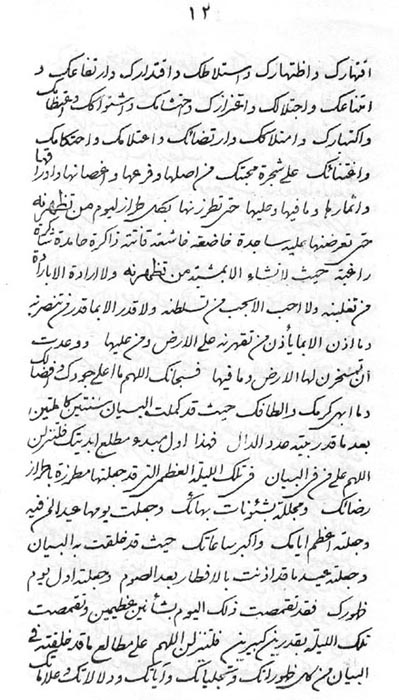 ١٢
اقتهارك واظتهارك واستلاطك واقتدارك وارتفاعك و
امتناعك واجتلالك واعتزازك واحتشامك واشتواكك واعتظامك
واكتبارك وامتلاكك وارتضائك واعتلامك واحتكامك
واغتنائك على شجرة محبتك من اصلها وفرعها واغصانها واوراقها
واثمارها وما فيها وعليها حتى تطرزنها بكل طراز ليوم من تظهرنه
حتى تعرضنها عليه ساجدة خاضعة خاشعة قانتة ذاكرة حامدة شاكرة
راغبة حيث لا تشاء الا بمشية من تظهرنه ولا ارادة الا بارادة
من تغلبنه ولا احب الا بحب من تسلطنه ولا قدر الا بما قدر من تنصرنه
وما اذن الا بما يأذن من تقهرنه على الارض ومن عليها ووعدت
أن تسخرن لها الارض وما فيها فسبحانك اللهم ما اعلى جودك وافضالك
وما ابهى كرمك والطافك حيث قد كملت البيان سنتين كاملتين
بعد ما قدر بيته عدد الدال فهذا اول مبدء مطلع ابديتك فلتنزلن
اللهم على من في البيان في تلك الليلة العظمى التي قد جعلتها مطرزة بطراز
رضائك ومجللة بشئونات بهائك وجعلت يومها عيد الخ فيه
وجعلته اعظم ايامك واكبر ساعاتك حيث قد خلقت به البيان
وجعلته عيد ما قد اذنت بالافطار بعد الصوم وجعلته اول يوم
ظهورك فقد تقمصت ذلك اليوم بشأنين عظيمين وتقمصت
تلك الليلة بقدرين كبيرين فلتنزلن اللهم على مطالع ما قد خلقته في
البيان من كل ظهوراتك وتجلياتك وآياتك ودلالاتك وعلاماتك